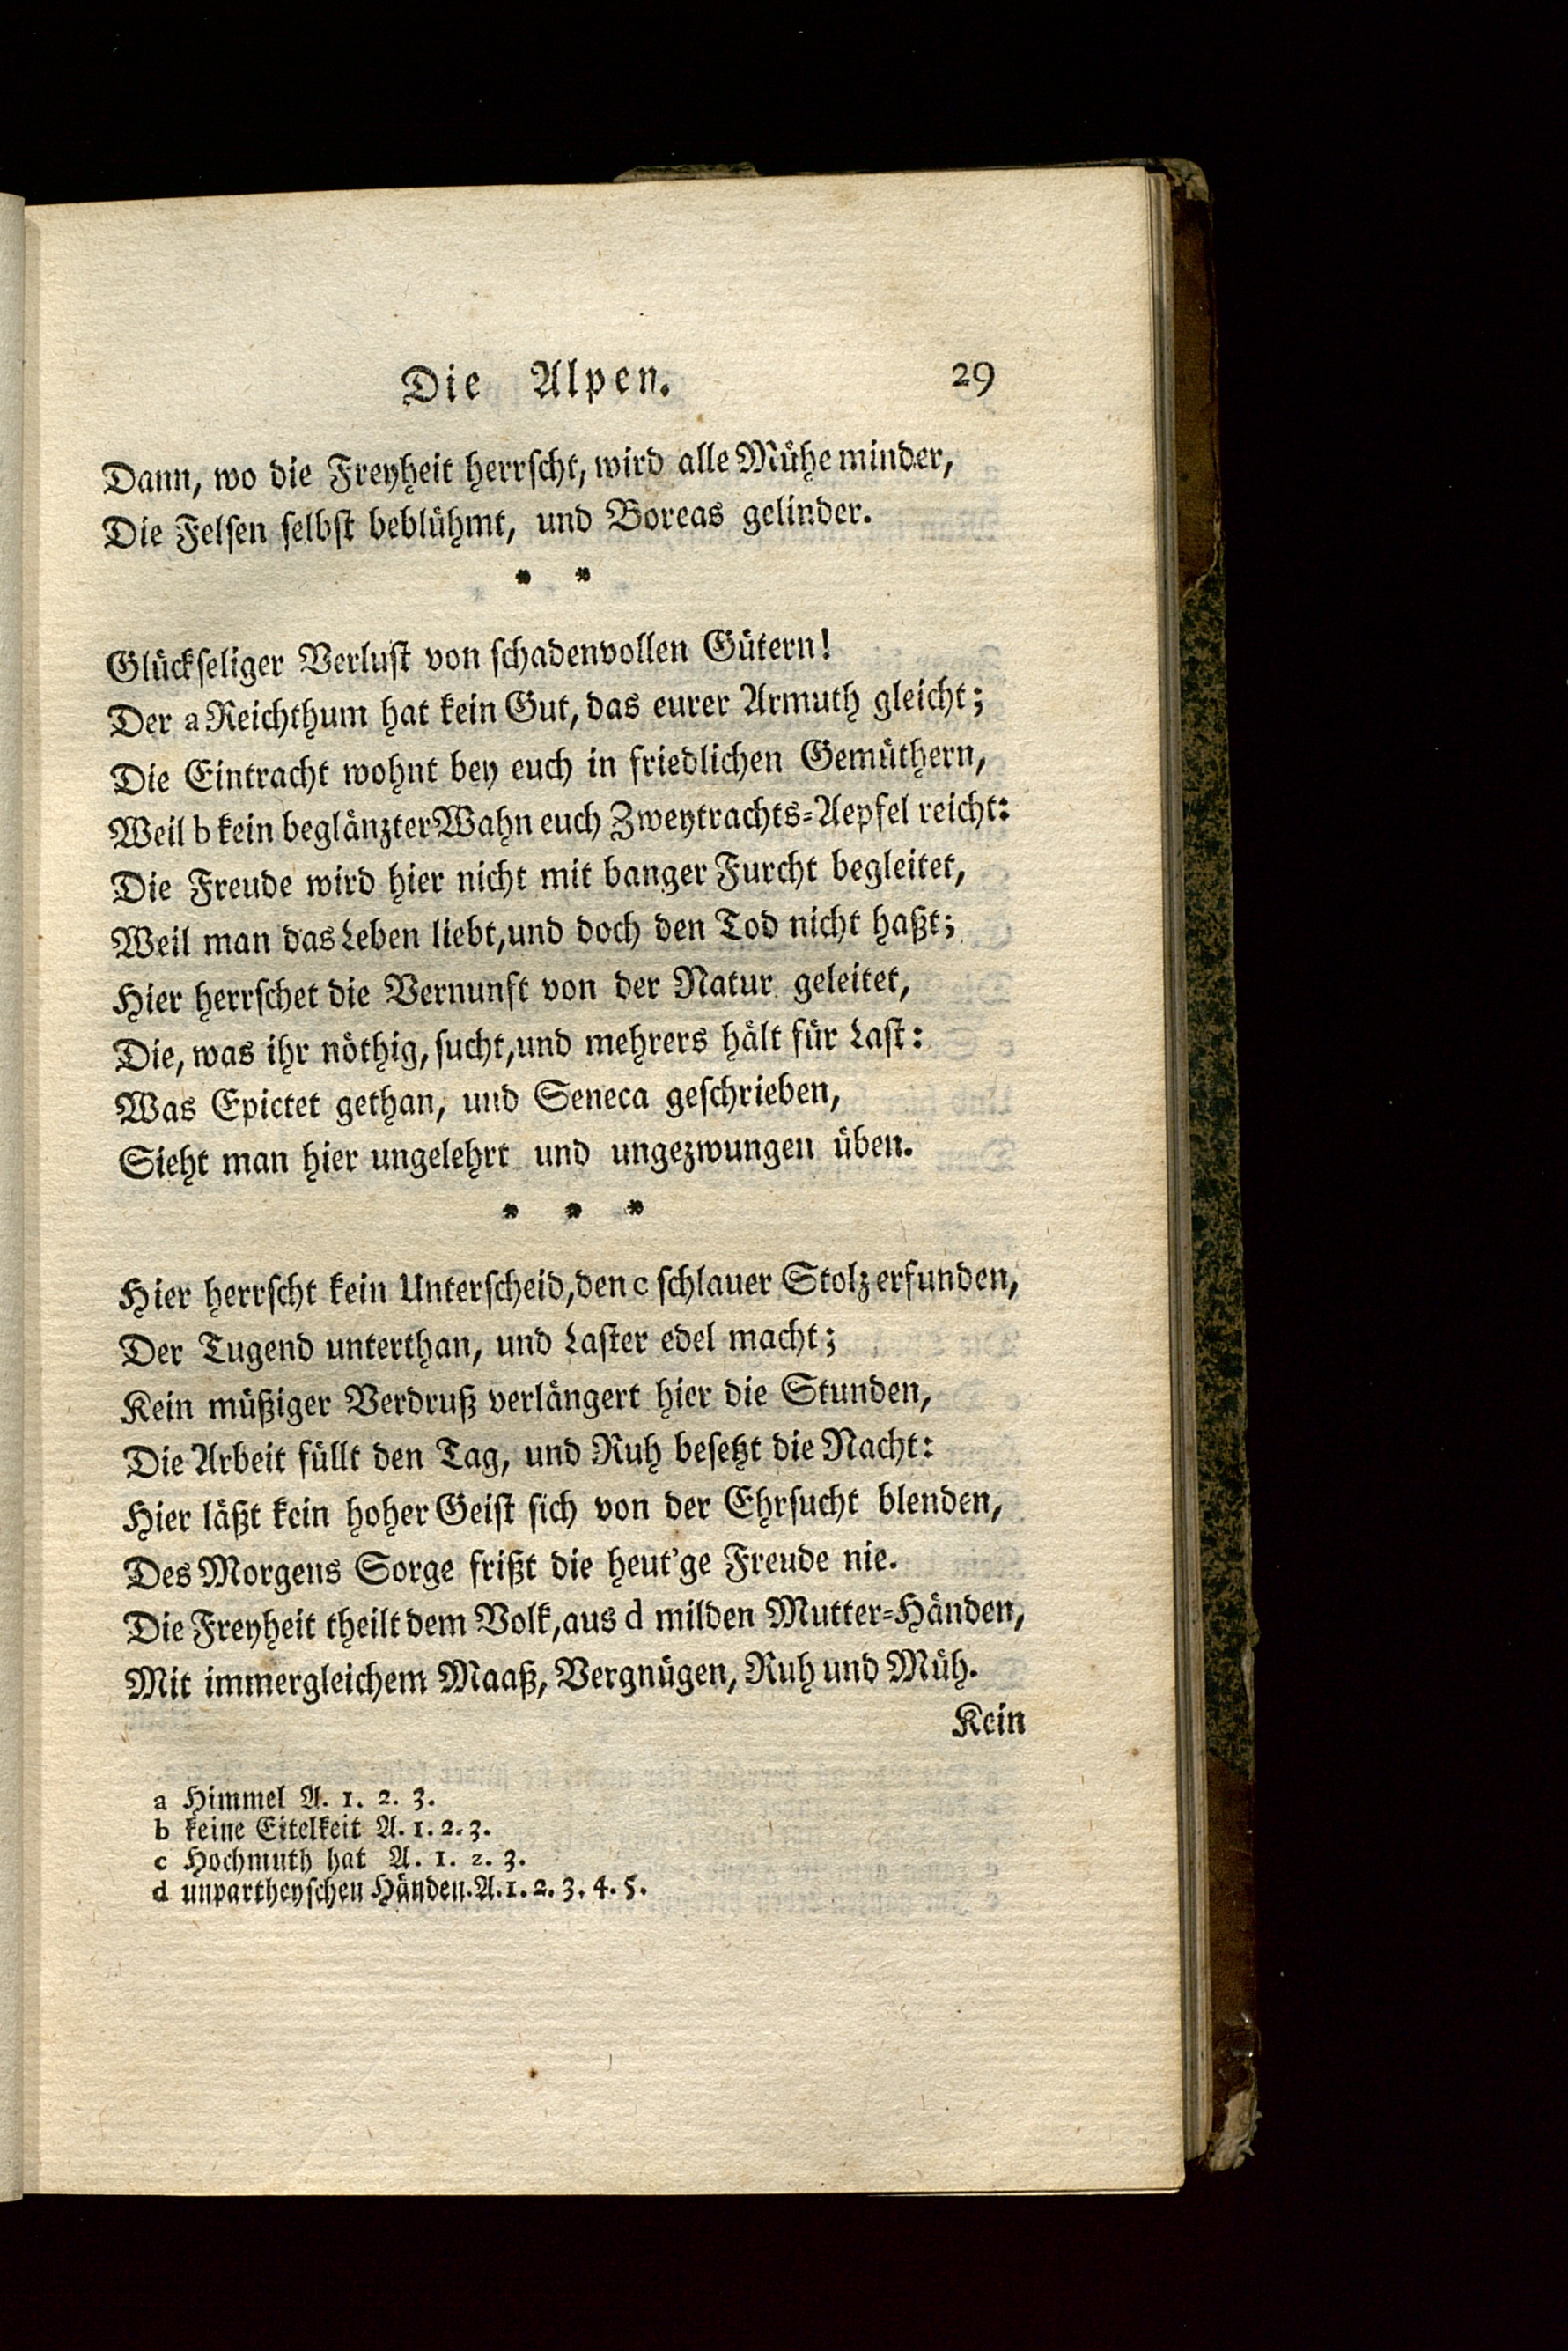 Die Alpen. 29
Dann, wo die Freyheit herrſcht, wird alle Mühe minder,
Die Felſen ſelbſt beblühmt, und Boreas gelinder.
* *
Glückſeliger Verluſt von ſchadenvollen Gütern!
Der a Reichthum hat kein Gut, das eurer Armuth gleicht;
Die Eintracht wohnt bey euch in friedlichen Gemüthern,
Weil b kein beglänzter Wahn euch Zweytrachts-Aepfel reicht:
Die Freude wird hier nicht mit banger Furcht begleitet,
Weil man das Leben liebt, und doch den Tod nicht haßt;
Hier herrſchet die Vernunft von der Natur geleitet,
Die, was ihr nöthig, ſucht, und mehrers hält für Laſt:
Was Epictet gethan, und Seneca geſchrieben,
Sieht man hier ungelehrt und ungezwungen üben.
* * *
Hier herrſcht kein Unterſcheid, den c ſchlauer Stolz erfunden,
Der Tugend unterthan, und Laſter edel macht;
Kein müßiger Verdruß verlängert hier die Stunden,
Die Arbeit füllt den Tag, und Ruh beſetzt die Nacht:
Hier läßt kein hoher Geiſt ſich von der Ehrſucht blenden,
Des Morgens Sorge frißt die heut'ge Freude nie.
Die Freyheit theilt dem Volk, aus d milden Mutter-Händen,
Mit immergleichem Maaß, Vergnügen, Ruh und Müh.
Kein
a Himmel A. 1. 2. 3.
b keine Eitelkeit A. 1. 2. 3.
c Hochmuth hat A. 1. 2. 3.
d unpartheyſchen Händen. A. 1. 2. 3. 4. 5.